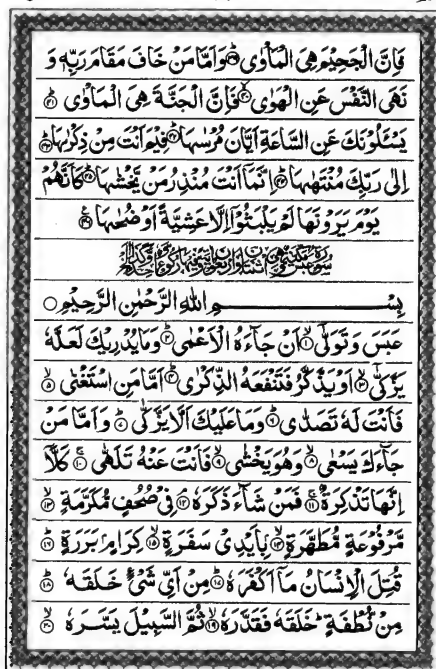 فَاِنَّ الْجَحِيْمَ هِيَ الْمَاْوٰى ۳۹ وَاَمَّا مَنْ خَافَ مَقَامَ رَبِّهٖ وَ
نَهَى النَّفْسَ عَنِ الْهَوٰى ۴۰ فَاِنَّ الْجَنَّةَ هِيَ الْمَاْوٰى ۴۱
يَسْـَٔلُوْنَكَ عَنِ السَّاعَةِ اَيَّانَ مُرْسٰىهَا ۴۲ فِيْمَ اَنْتَ مِنْ ذِكْرٰىهَا ۴۳
اِلٰى رَبِّكَ مُنْتَهٰىهَا ۴۴ اِنَّمَآ اَنْتَ مُنْذِرُ مَنْ يَّخْشٰىهَا ۴۵ كَاَنَّهُمْ
يَوْمَ يَرَوْنَهَا لَمْ يَلْبَثُوْٓا اِلَّا عَشِيَّةً اَوْ ضُحٰىهَا ۴۶
بِسْمِ اللّٰهِ الرَّحْمٰنِ الرَّحِيْمِ
عَبَسَ وَتَوَلّٰىٓ ۱ اَنْ جَآءَهُ الْاَعْمٰى ۲ وَمَا يُدْرِيْكَ لَعَلَّهٗ
يَزَّكّٰىٓ ۳ اَوْ يَذَّكَّرُ فَتَنْفَعَهُ الذِّكْرٰى ۴ اَمَّا مَنِ اسْتَغْنٰى ۵
فَاَنْتَ لَهٗ تَصَدّٰى ۶ وَمَا عَلَيْكَ اَلَّا يَزَّكّٰى ۷ وَاَمَّا مَنْ
جَآءَكَ يَسْعٰى ۸ وَهُوَ يَخْشٰى ۹ فَاَنْتَ عَنْهُ تَلَهّٰى ۱۰ كَلَّآ
اِنَّهَا تَذْكِرَةٌ ۱۱ فَمَنْ شَآءَ ذَكَرَهٗ ۱۲ فِيْ صُحُفٍ مُّكَرَّمَةٍ ۱۳
مَّرْفُوْعَةٍ مُّطَهَّرَةٍ ۱۴ بِاَيْدِيْ سَفَرَةٍ ۱۵ كِرَامٍۢ بَرَرَةٍ ۱۶
قُتِلَ الْاِنْسَانُ مَآ اَكْفَرَهٗ ۱۷ مِنْ اَيِّ شَيْءٍ خَلَقَهٗ ۱۸
مِنْ نُّطْفَةٍ خَلَقَهٗ فَقَدَّرَهٗ ۱۹ ثُمَّ السَّبِيْلَ يَسَّرَهٗ ۲۰